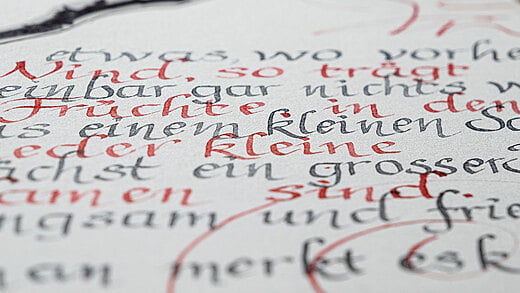 etwas, wo vorhe
Wind, so trägt
einbar gar nichts w
Früchte. in den
as einem kleinen Sa
jeder kleine
ächst ein grosser
amen sind.
ngsam und frie
an merkt es k